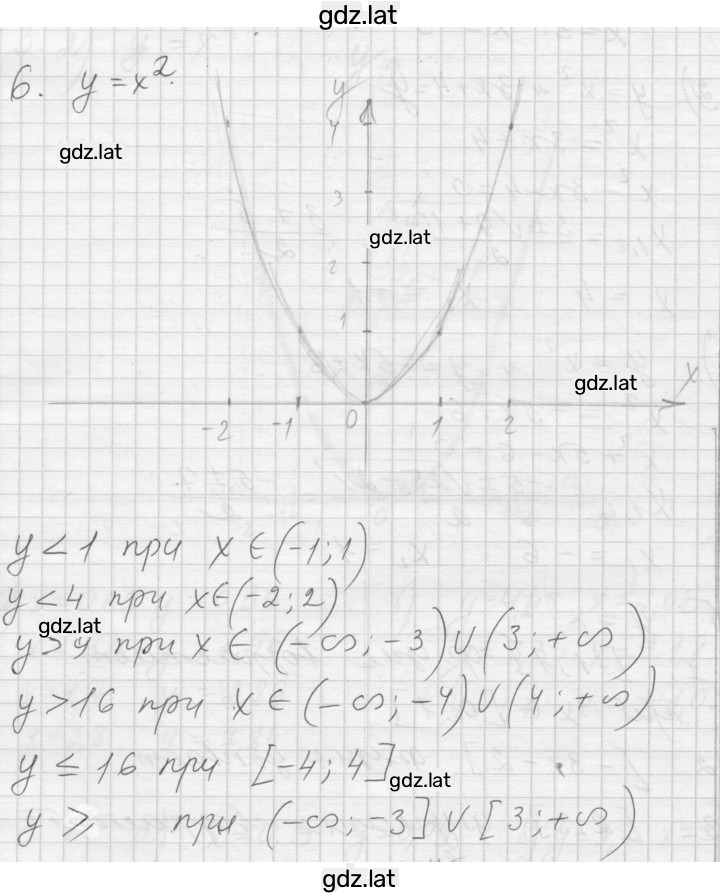 gdz.lat
6. y = x².
y
4
gdz.lat
3
gdz.lat
2
1
gdz.lat
x
-2 -1 0 1 2
y < 1 при x ∈ (-1; 1)
y < 4 при x ∈ (-2; 2)
gdz.lat
y > 9 при x ∈ (-∞; -3) ∪ (3; +∞)
y > 16 при x ∈ (-∞; -4) ∪ (4; +∞)
y ≤ 16 при [-4; 4]
gdz.lat
y ≥ при (-∞; -3] ∪ [3; +∞)
gdz.lat